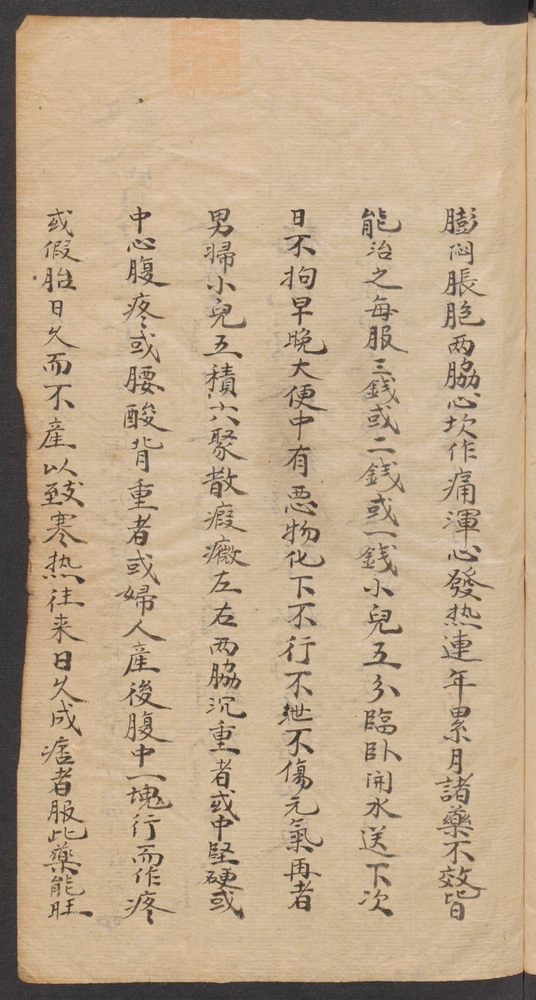 膨悶脹胞两脇心坎作痛渾心發热連年累月諸藥不效皆
能治之每服三錢或二錢或一錢小兒五分臨卧開水送下次
日不拘早晚大便中有悪物化下不行不泄不傷元氣再者
男婦小兒五積六聚散瘕癥左右两脇沉重者或中堅硬或
中心腹疼或腰酸背重者或婦人産後腹中一塊行而作疼
或假胎日久而不産以致寒热往来日久成痞者服此藥能旺